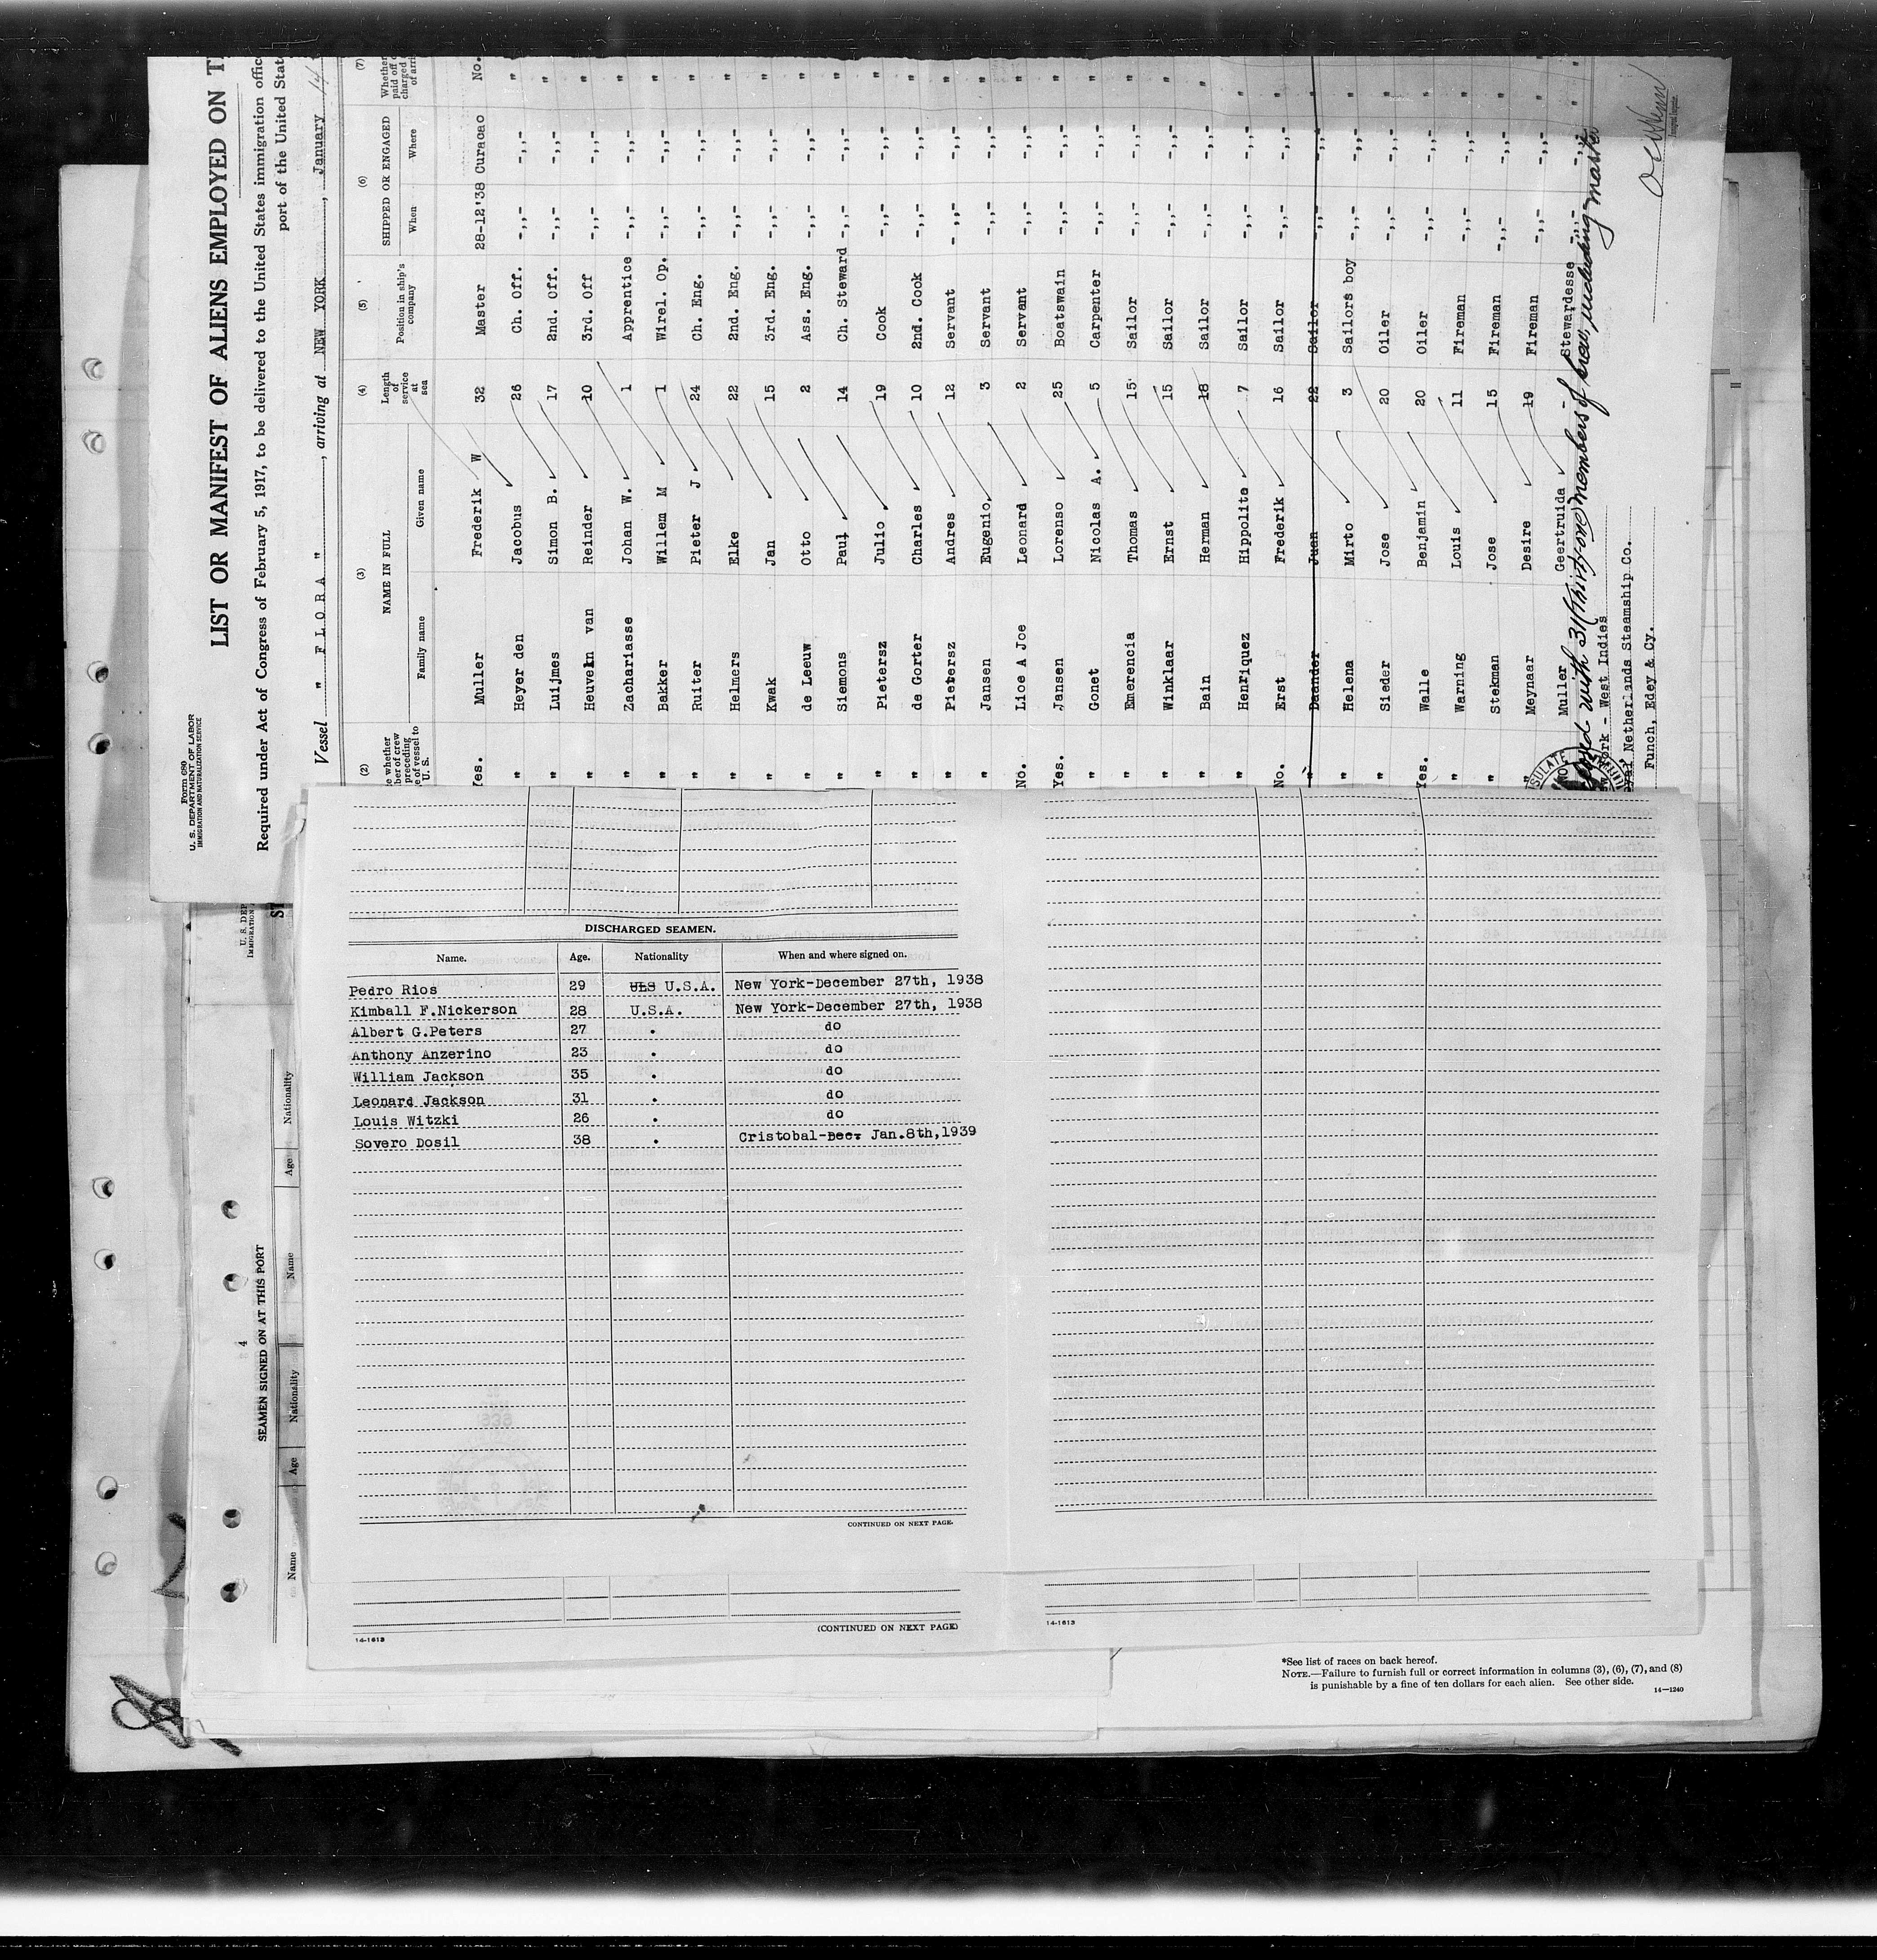 Form 680
U. S. DEPARTMENT OF LABOR
IMMIGRATION AND NATURALIZATION SERVICE
LIST OR MANIFEST OF ALIENS EMPLOYED ON
Required under Act of Congress of February 5, 1917, to be delivered to the United States immigration
port of the United
Vessel " FLORA " , arriving at NEW YORK , January 14
(2) (3) (4) (5) (6) (7)
NAME IN FULL Length of service at sea Position in ship's company SHIPPED OR ENGAGED
Family name Given name When Where
Yes. Muller Frederik W 32 Master 28-12'38 Curacao No.
" Heyer den Jacobus 26 Ch. Off. -,,- -,,- "
" Luijmes Simon B. 17 2nd. Off. -,,- -,,- "
" Heuveln van Reinder 10 3rd. Off -,,- -,,- "
" Zachariasse Johan W. 1 Apprentice -,,- -,,- "
" Bakker Willem M 1 Wirel. Op. -,,- -,,- "
" Ruiter Pieter J 24 Ch. Eng. -,,- -,,- "
" Helmers Elke 22 2nd. Eng. -,,- -,,- "
" Kwak Jan 15 3rd. Eng. -,,- -,,- "
" de Leeuw Otto 2 Ass. Eng. -,,- -,,- "
" Siemons Paul 14 Ch. Steward -,,- -,,- "
" Pietersz Julio 19 Cook -,,- -,,- "
" de Gorter Charles 10 2nd. Cook -,,- -,,- "
" Pietersz Andres 12 Servant -,,- -,,- "
" Jansen Eugenio 3 Servant -,,- -,,- "
No. Lioe A Joe Leonard 2 Servant -,,- -,,- "
Yes. Jansen Lorenso 25 Boatswain -,,- -,,- "
" Gonet Nicolas A. 5 Carpenter -,,- -,,- "
" Emerencia Thomas 15 Sailor -,,- -,,- "
" Winklaar Ernst 15 Sailor -,,- -,,- "
" Bain Herman 18 Sailor -,,- -,,- "
" Henriquez Hippolite 7 Sailor -,,- -,,- "
No. Erst Frederik 16 Sailor -,,- -,,- "
" Daander Juan 22 Sailor -,,- -,,- "
" Helena Mirto 3 Sailors boy -,,- -,,- "
" Sieder Jose 20 Oiler -,,- -,,- "
Yes. Walle Benjamin 20 Oiler -,,- -,,- "
" Warning Louis 11 Fireman -,,- -,,- "
" Stekman Jose 15 Fireman -,,- -,,- "
" Meynar Desire 19 Fireman -,,- -,,- "
Muller Geertruida - Stewardesse -,,- -,,- "
with 31 (Thirty one) members of crew, including master
York - West Indies
Netherlands Steamship Co.
Funch, Edye & Cy.
DISCHARGED SEAMEN.
Name. Age. Nationality When and where signed on.
Pedro Rios 29 ULS U.S.A. New York-December 27th, 1938
Kimball F.Nickerson 28 U.S.A. New York-December 27th, 1938
Albert G.Peters 27 " do
Anthony Anzerino 23 " do
William Jackson 35 " do
Leonard Jackson 31 " do
Louis Witzki 26 " do
Sovero Dosil 38 " Cristobal-Dec. Jan.8th,1939
CONTINUED ON NEXT PAGE.
(CONTINUED ON NEXT PAGE)
14-1613
14-1613
4
SEAMEN SIGNED ON AT THIS PORT
Name Age Nationality Name Age Nationality
*See list of races on back hereof.
NOTE.—Failure to furnish full or correct information in columns (3), (6), (7), and (8)
is punishable by a fine of ten dollars for each alien. See other side.
14—1240